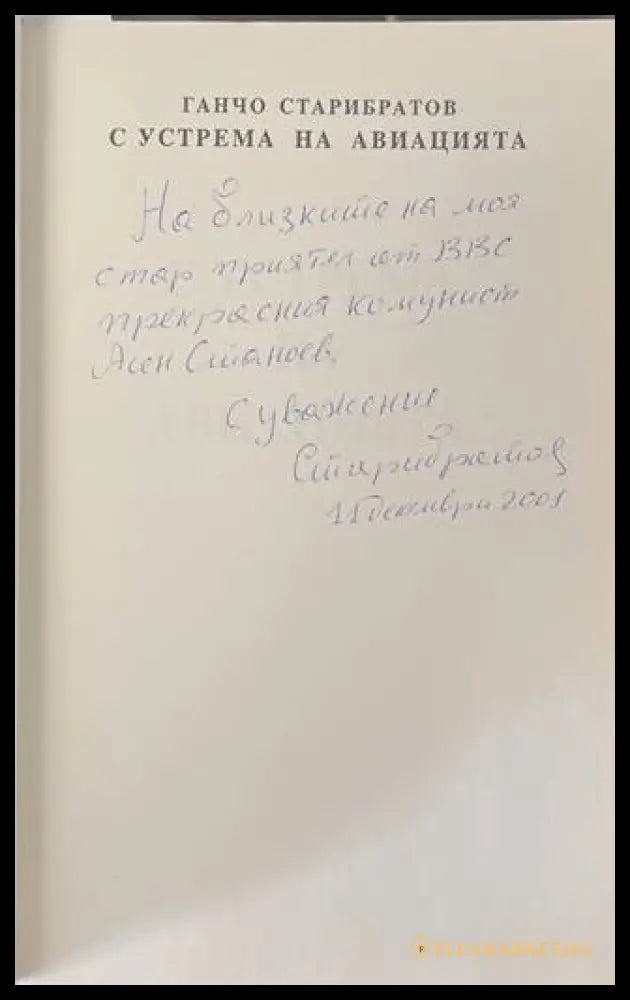 ГАНЧО СТАРИБРАТОВ
С УСТРЕМА НА АВИАЦИЯТА
На близките на моя
стар приятел от ВВС
прекрасния комунист
Асен Станоев.
С уважение
Старибратов
11 декември 2001
FLEAMARKET.BG